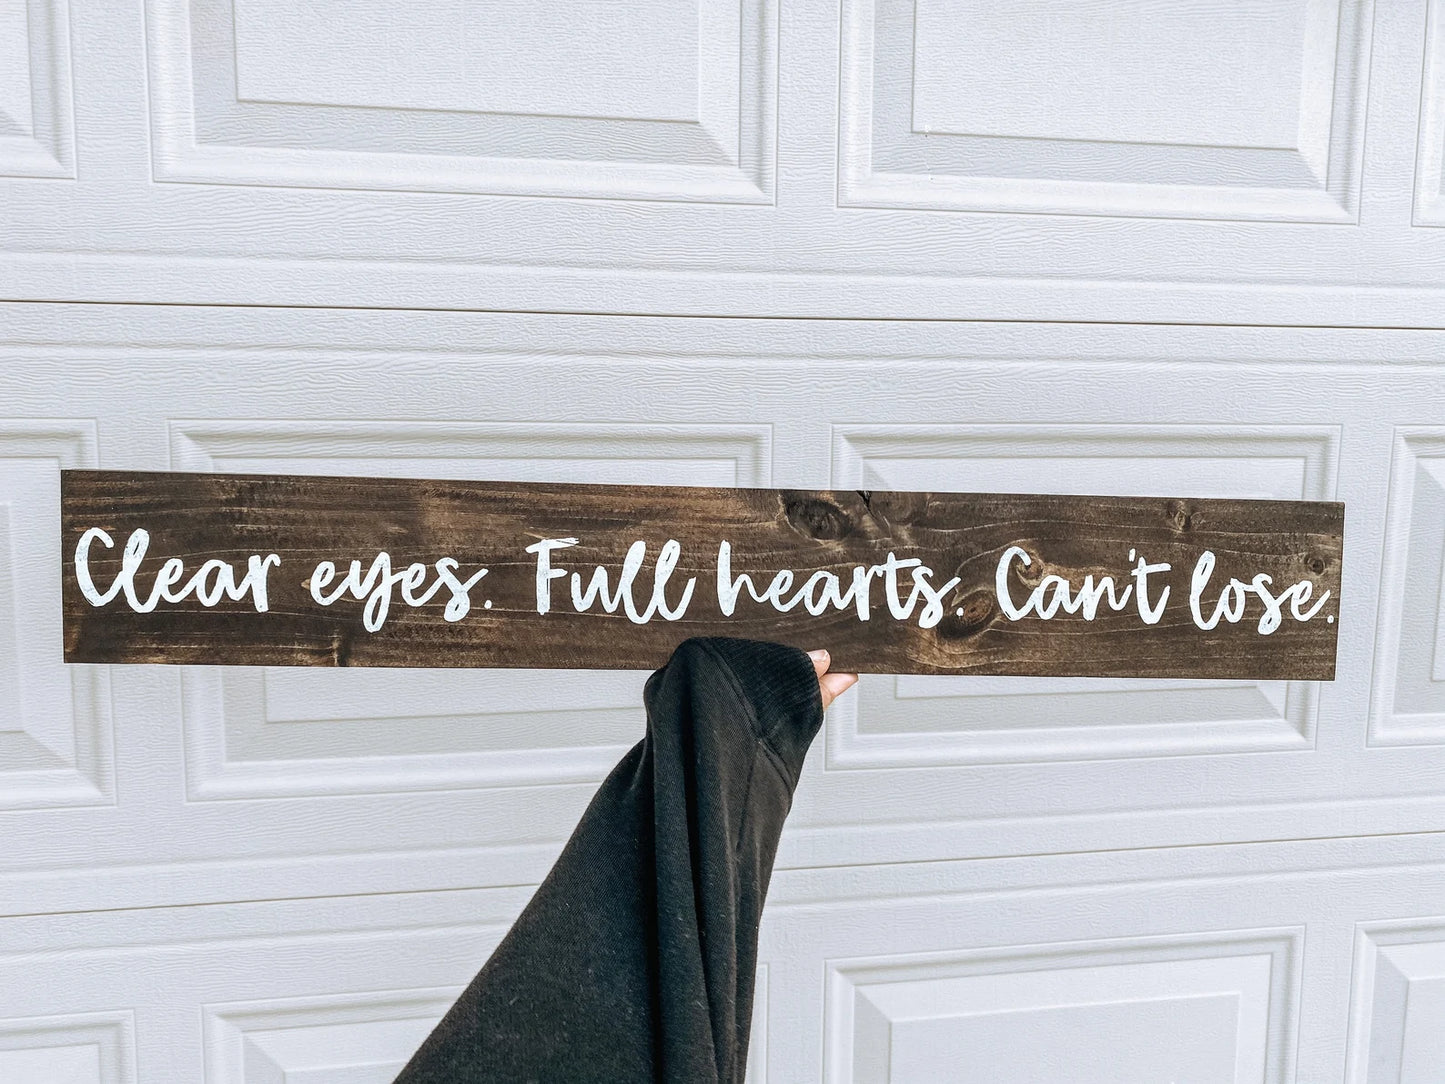 Clear eyes. Full hearts. Can't lose.